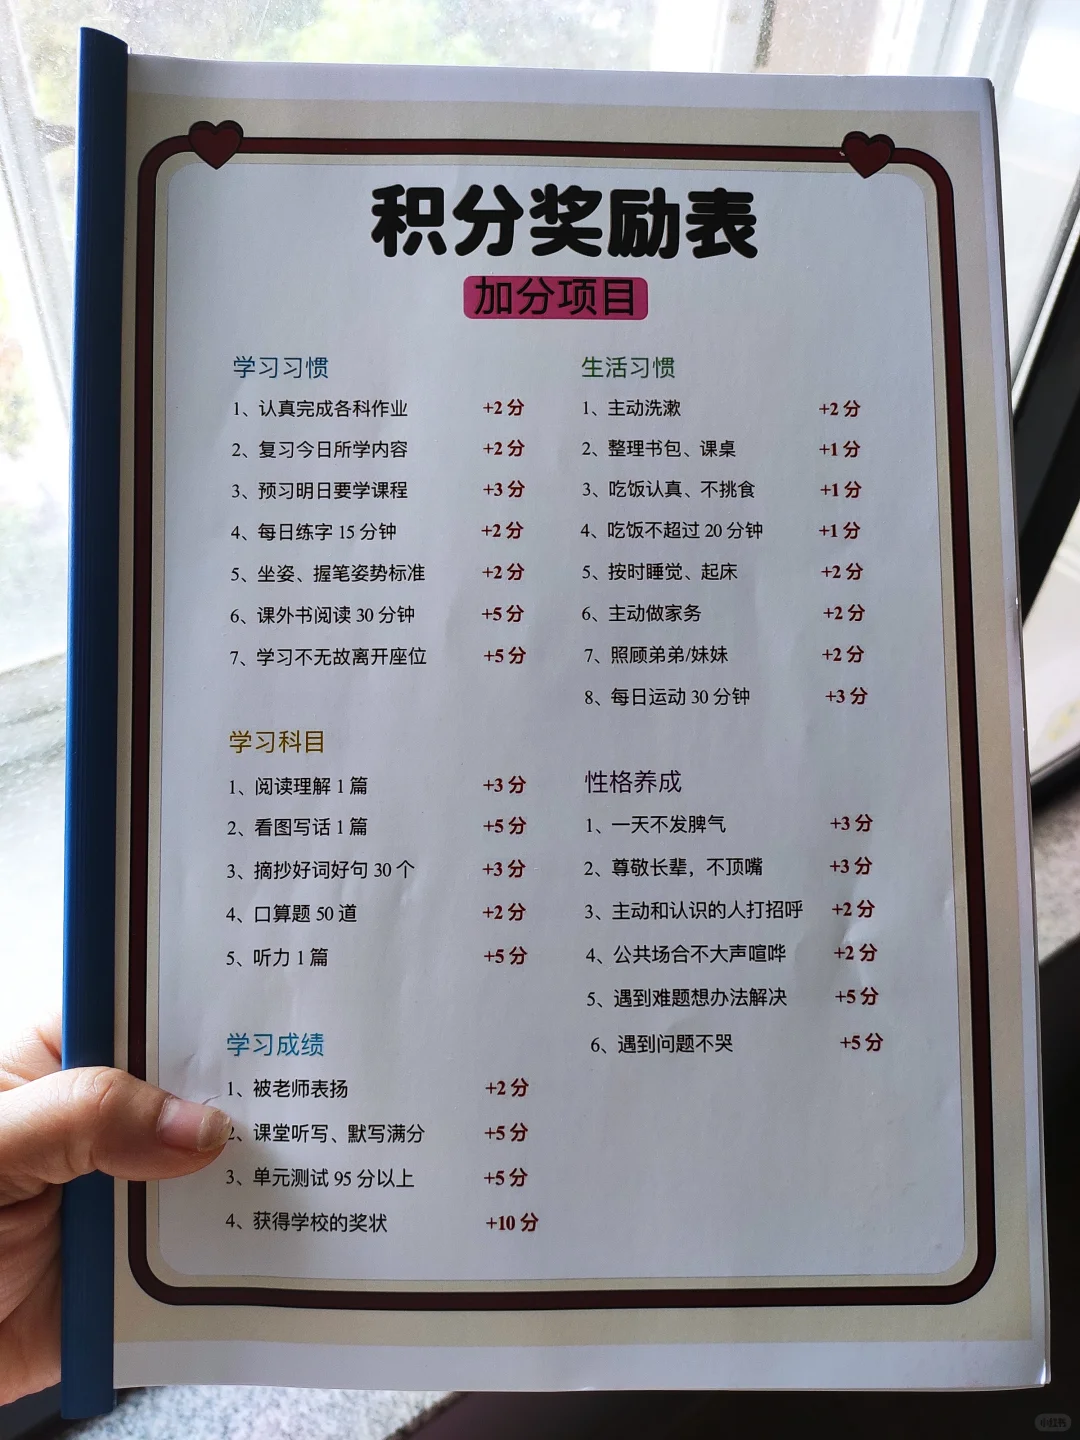 积分奖励表
加分项目
学习习惯
1、认真完成各科作业 +2 分
2、复习今日所学内容 +2 分
3、预习明日要学课程 +3 分
4、每日练字 15 分钟 +2 分
5、坐姿、握笔姿势标准 +2 分
6、课外书阅读 30 分钟 +5 分
7、学习不无故离开座位 +5 分
学习科目
1、阅读理解 1 篇 +3 分
2、看图写话 1 篇 +5 分
3、摘抄好词好句 30 个 +3 分
4、口算题 50 道 +2 分
5、听力 1 篇 +5 分
学习成绩
1、被老师表扬 +2 分
2、课堂听写、默写满分 +5 分
3、单元测试 95 分以上 +5 分
4、获得学校的奖状 +10 分
生活习惯
1、主动洗漱 +2 分
2、整理书包、课桌 +1 分
3、吃饭认真、不挑食 +1 分
4、吃饭不超过 20 分钟 +1 分
5、按时睡觉、起床 +2 分
6、主动做家务 +2 分
7、照顾弟弟/妹妹 +2 分
8、每日运动 30 分钟 +3 分
性格养成
1、一天不发脾气 +3 分
2、尊敬长辈，不顶嘴 +3 分
3、主动和认识的人打招呼 +2 分
4、公共场合不大声喧哗 +2 分
5、遇到难题想办法解决 +5 分
6、遇到问题不哭 +5 分
小红书